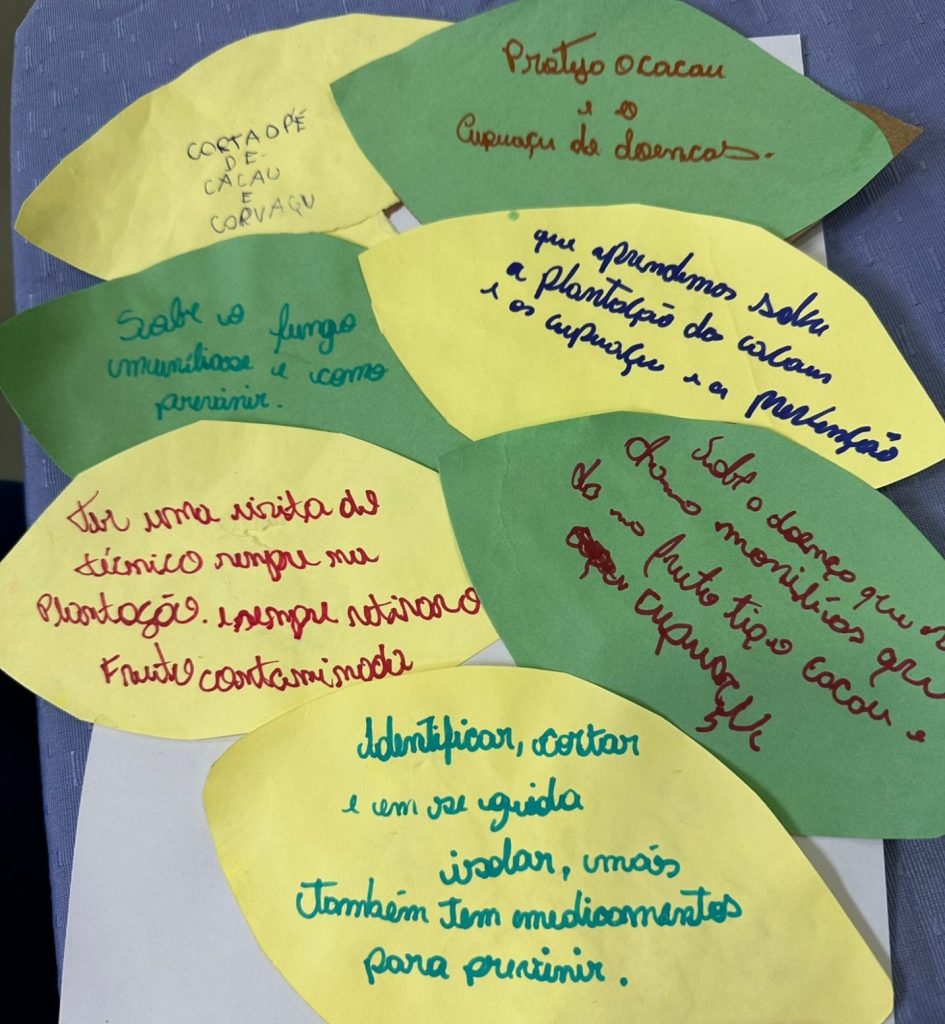 CORTA O PÉ
DE
CACAU
E
CORVAÇU
Protejo o cacau
e o
Cupuaçu de doencas.
que aprendemos sobre
a plantação do cacau
e os cupuaçu e a
Sobe o fungo
e como
previnir.
Ter uma visita de
técnico sempre na
Plantação. e sempre retirar o
Fruto contaminado
Sobe o doença que
chamo
da no fruto tipo cacau e
Identificar, cortar
e em se guida
isolar, mais
Também Tem medicamentos
para previnir.